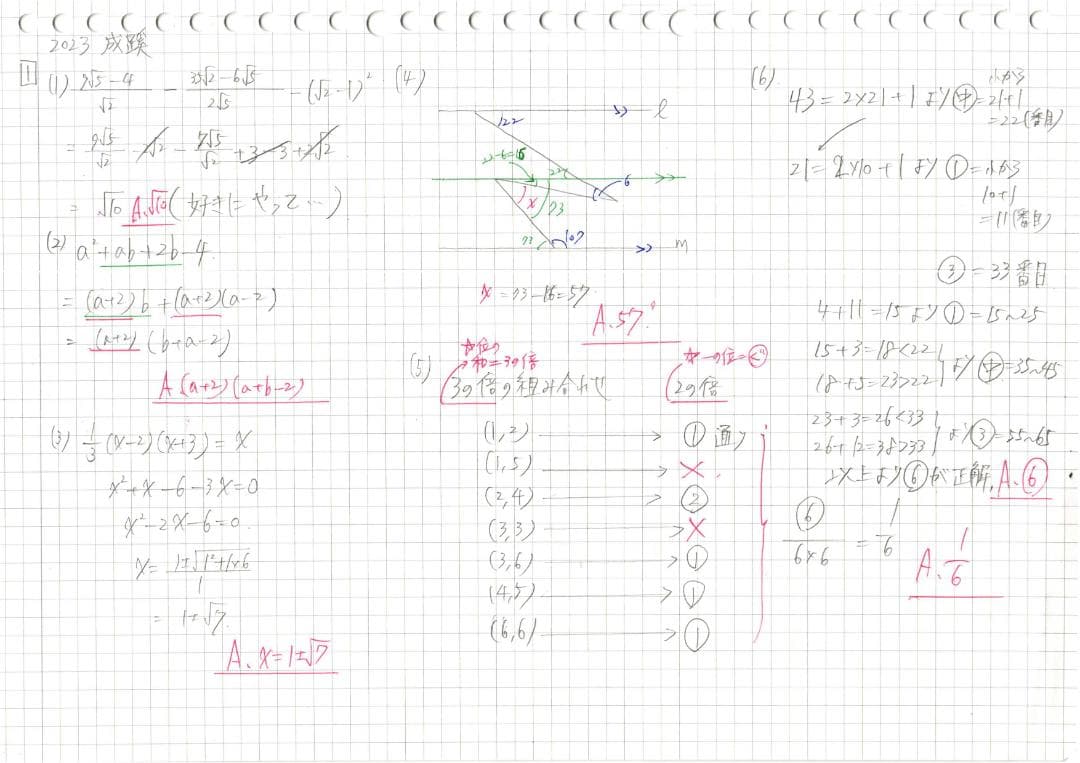 2023 成蹊
1
(1) (9√5-4)/√2 - (35√2-6√5)/2√5 - (√2-1)²
= 9√5/√2 - 2√2 - 7√5/√2 + 3 - 3 + 2√2
= √10 A.√10 (好きにやって…)
(2) a²+ab+2b-4
= (a+2)b+(a+2)(a-2)
= (a+2)(b+a-2)
A.(a+2)(a+b-2)
(3) 1/3(x-2)(x+3)=x
x²+x-6-3x=0
x²-2x-6=0
x=(1±√(1²+1×6))/1
= 1±√7
A. x=1±√7
(4)
l
122
22-6=16
22
6
x
73
73
107
m
x=73-16=57
A.57°
(5)
各位の
和=3の倍
3の倍の組み合わせ
2の倍
(1,2) → ①通り
(1,5) → ×
(2,4) → ②
(3,3) → ×
(3,6) → ①
(4,5) → ①
(6,6) → ①
⑥/6×6 = 1/6
A. 1/6
(6)
43=2×21+1より㊥=小から
21+1
=22(番目)
21=2×10+1より①=小から
10+1
=11(番目)
③=33番目
4+11=15より①=15~25
15+3=18<22
18+5=23>22
より㊥=35~45
23+3=26<33
26+12=38>33
より③=55~65
以上より⑥が正解, A.⑥